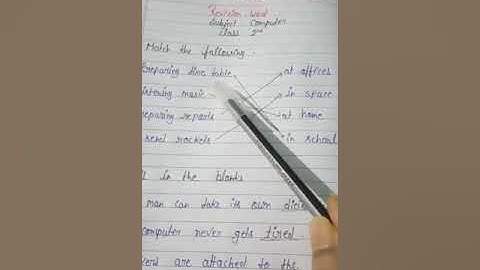 Revision work
Subject Computer
Class 2nd
Match the following.
Preparing time table at offices
istening music in space
reparing reports at home
send rockets in school
l in the blanks
man can take its own
computer never gets tired.
are attached to the